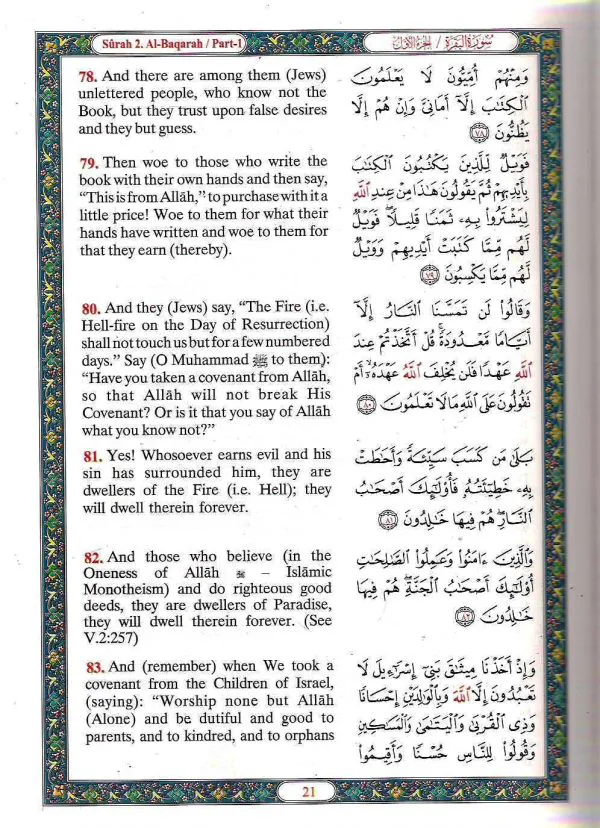 Sûrah 2. Al-Baqarah / Part-1
سورة البقرة ٢ / الجزء الأول
78. And there are among them (Jews)
unlettered people, who know not the
Book, but they trust upon false desires
and they but guess.
وَمِنْهُمْ أُمِّيُّونَ لَا يَعْلَمُونَ
الْكِتَابَ إِلَّا أَمَانِيَّ وَإِنْ هُمْ إِلَّا
يَظُنُّونَ ٧٨
79. Then woe to those who write the
book with their own hands and then say,
“This is from Allâh,” to purchase with it a
little price! Woe to them for what their
hands have written and woe to them for
that they earn (thereby).
فَوَيْلٌ لِّلَّذِينَ يَكْتُبُونَ الْكِتَابَ
بِأَيْدِيهِمْ ثُمَّ يَقُولُونَ هَٰذَا مِنْ عِندِ اللَّهِ
لِيَشْتَرُوا بِهِ ثَمَنًا قَلِيلًا فَوَيْلٌ
لَّهُم مِّمَّا كَتَبَتْ أَيْدِيهِمْ وَوَيْلٌ
لَّهُم مِّمَّا يَكْسِبُونَ ٧٩
80. And they (Jews) say, “The Fire (i.e.
Hell-fire on the Day of Resurrection)
shall not touch us but for a few numbered
days.” Say (O Muhammad ﷺ to them):
“Have you taken a covenant from Allâh,
so that Allâh will not break His
Covenant? Or is it that you say of Allâh
what you know not?”
وَقَالُوا لَن تَمَسَّنَا النَّارُ إِلَّا
أَيَّامًا مَّعْدُودَةً قُلْ أَتَّخَذْتُمْ عِندَ
اللَّهِ عَهْدًا فَلَن يُخْلِفَ اللَّهُ عَهْدَهُ أَمْ
تَقُولُونَ عَلَى اللَّهِ مَا لَا تَعْلَمُونَ ٨٠
81. Yes! Whosoever earns evil and his
sin has surrounded him, they are
dwellers of the Fire (i.e. Hell); they
will dwell therein forever.
بَلَىٰ مَن كَسَبَ سَيِّئَةً وَأَحَاطَتْ
بِهِ خَطِيئَتُهُ فَأُولَٰئِكَ أَصْحَابُ
النَّارِ هُمْ فِيهَا خَالِدُونَ ٨١
82. And those who believe (in the
Oneness of Allâh – Islâmic
Monotheism) and do righteous good
deeds, they are dwellers of Paradise,
they will dwell therein forever. (See
V.2:257)
وَالَّذِينَ ءَامَنُوا وَعَمِلُوا الصَّالِحَاتِ
أُولَٰئِكَ أَصْحَابُ الْجَنَّةِ هُمْ فِيهَا
خَالِدُونَ ٨٢
83. And (remember) when We took a
covenant from the Children of Israel,
(saying): “Worship none but Allâh
(Alone) and be dutiful and good to
parents, and to kindred, and to orphans
وَإِذْ أَخَذْنَا مِيثَاقَ بَنِي إِسْرَائِيلَ لَا
تَعْبُدُونَ إِلَّا اللَّهَ وَبِالْوَالِدَيْنِ إِحْسَانًا
وَذِي الْقُرْبَىٰ وَالْيَتَامَىٰ وَالْمَسَاكِينِ
وَقُولُوا لِلنَّاسِ حُسْنًا وَأَقِيمُوا
21